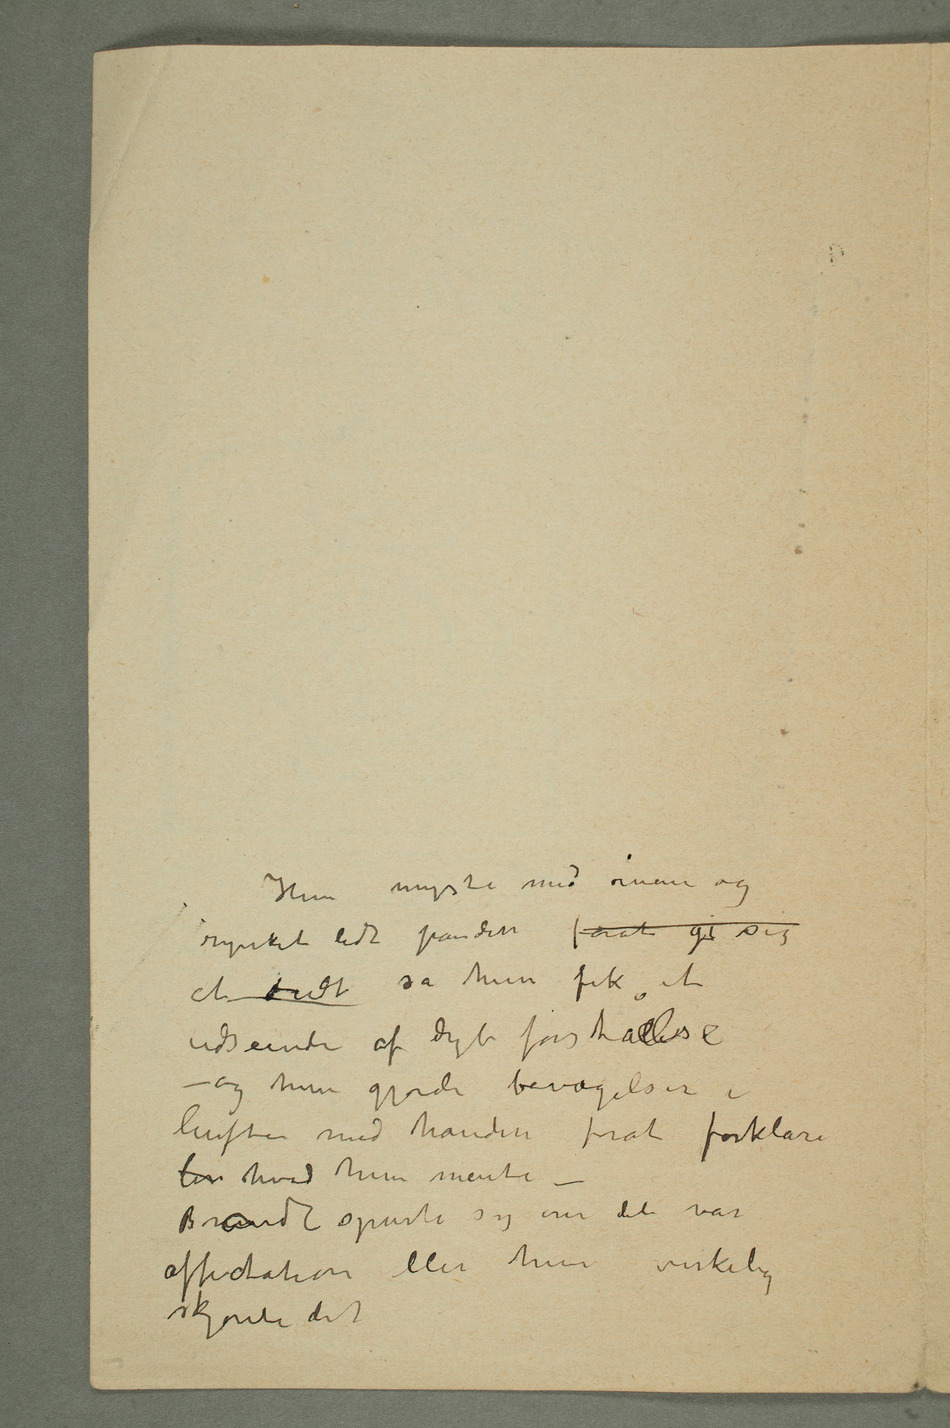 Hun myste med øinene og
rynket lidt panden forat gi sig
et så hun fik et
udseende af dyb forståelse
– og hun gjorde bevægelser i
luften med handen forat forklare
hvad hun mente –
Brandt spurte sig om det var
affectation eller hun virkelig
skjønte det